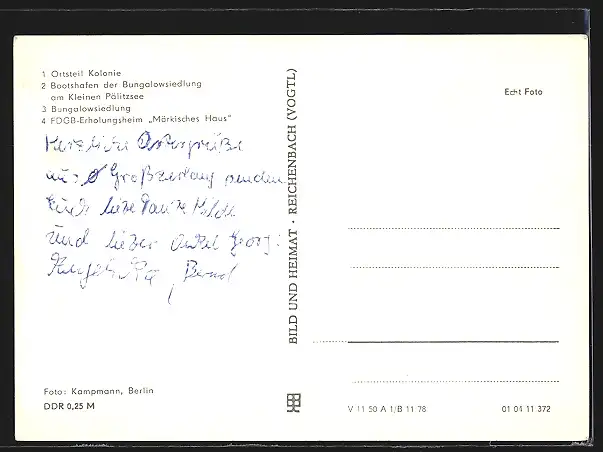 1 Ortsteil Kolonie
2 Bootshafen der Bungalowsiedlung
am Kleinen Pälitzsee
3 Bungalowsiedlung
4 FDGB-Erholungsheim „Märkisches Haus"
Herzliche Ostergrüße
aus Großzerlang senden
Euch liebe Tante Hilde
und lieber Onkel Georg
Bernd
Foto: Kampmann, Berlin
DDR 0,25 M
BILD UND HEIMAT · REICHENBACH (VOGTL)
Echt Foto
V 11 50 A 1/B 11 78
01 04 11 372